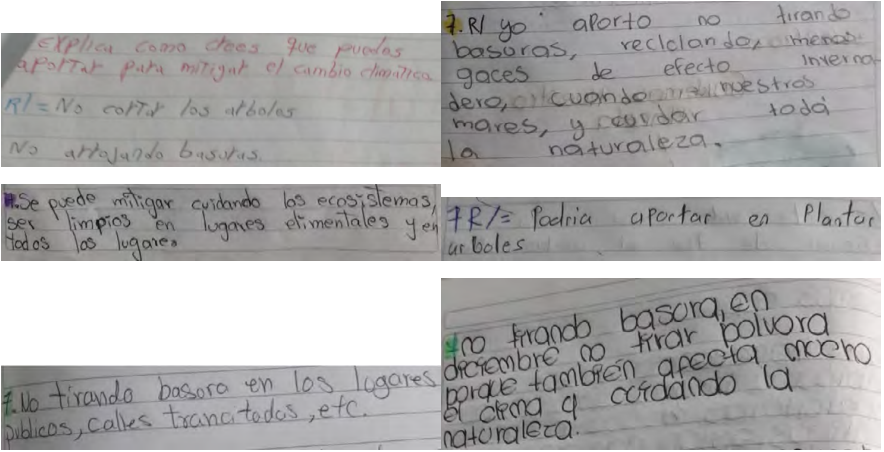 Explica como crees que puedas
aportar para mitigar el cambio climatico
R/= No cortar los arboles
No arrojando basuras.
7. R/ yo aporto no tirando
basuras, reciclando, menos
gaces de efecto inverna
dero, cuando nuestros
mares, y cuidar toda
la naturaleza.
Se puede mitigar cuidando los ecosistemas,
ser limpios en lugares elimentales y en
todos los lugares
7R/= Podria aportar en Plantar
arboles
7. No tirando bassora en los lugares
publicos, calles trancitadas, etc.
no tirando basora, en
diciembre no tirar polvora
porque también afecta
el clima y coidando la
natoraleza.